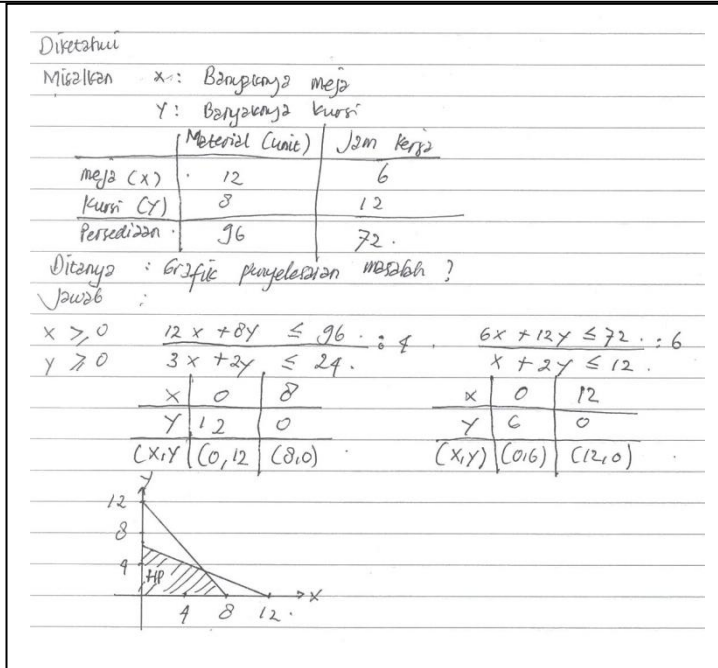 Diketahui
Misalkan x : Banyaknya meja
Y : Banyaknya kursi
Material (unit) Jam kerja
meja (x) 12 6
Kursi (Y) 8 12
Persediaan 96 72.
Ditanya : Grafik penyelesaian masalah ?
Jawab :
x ≥ 0 12x + 8y ≤ 96 . : 4 . 6x + 12y ≤ 72 . : 6
y ≥ 0 3x + 2y ≤ 24 . x + 2y ≤ 12 .
x 0 8 x 0 12
Y 12 0 Y 6 0
(x,y (0,12 (8,0) . (x,y) (0,6) (12,0) .
y
12
8
4 HP
4 8 12 . x